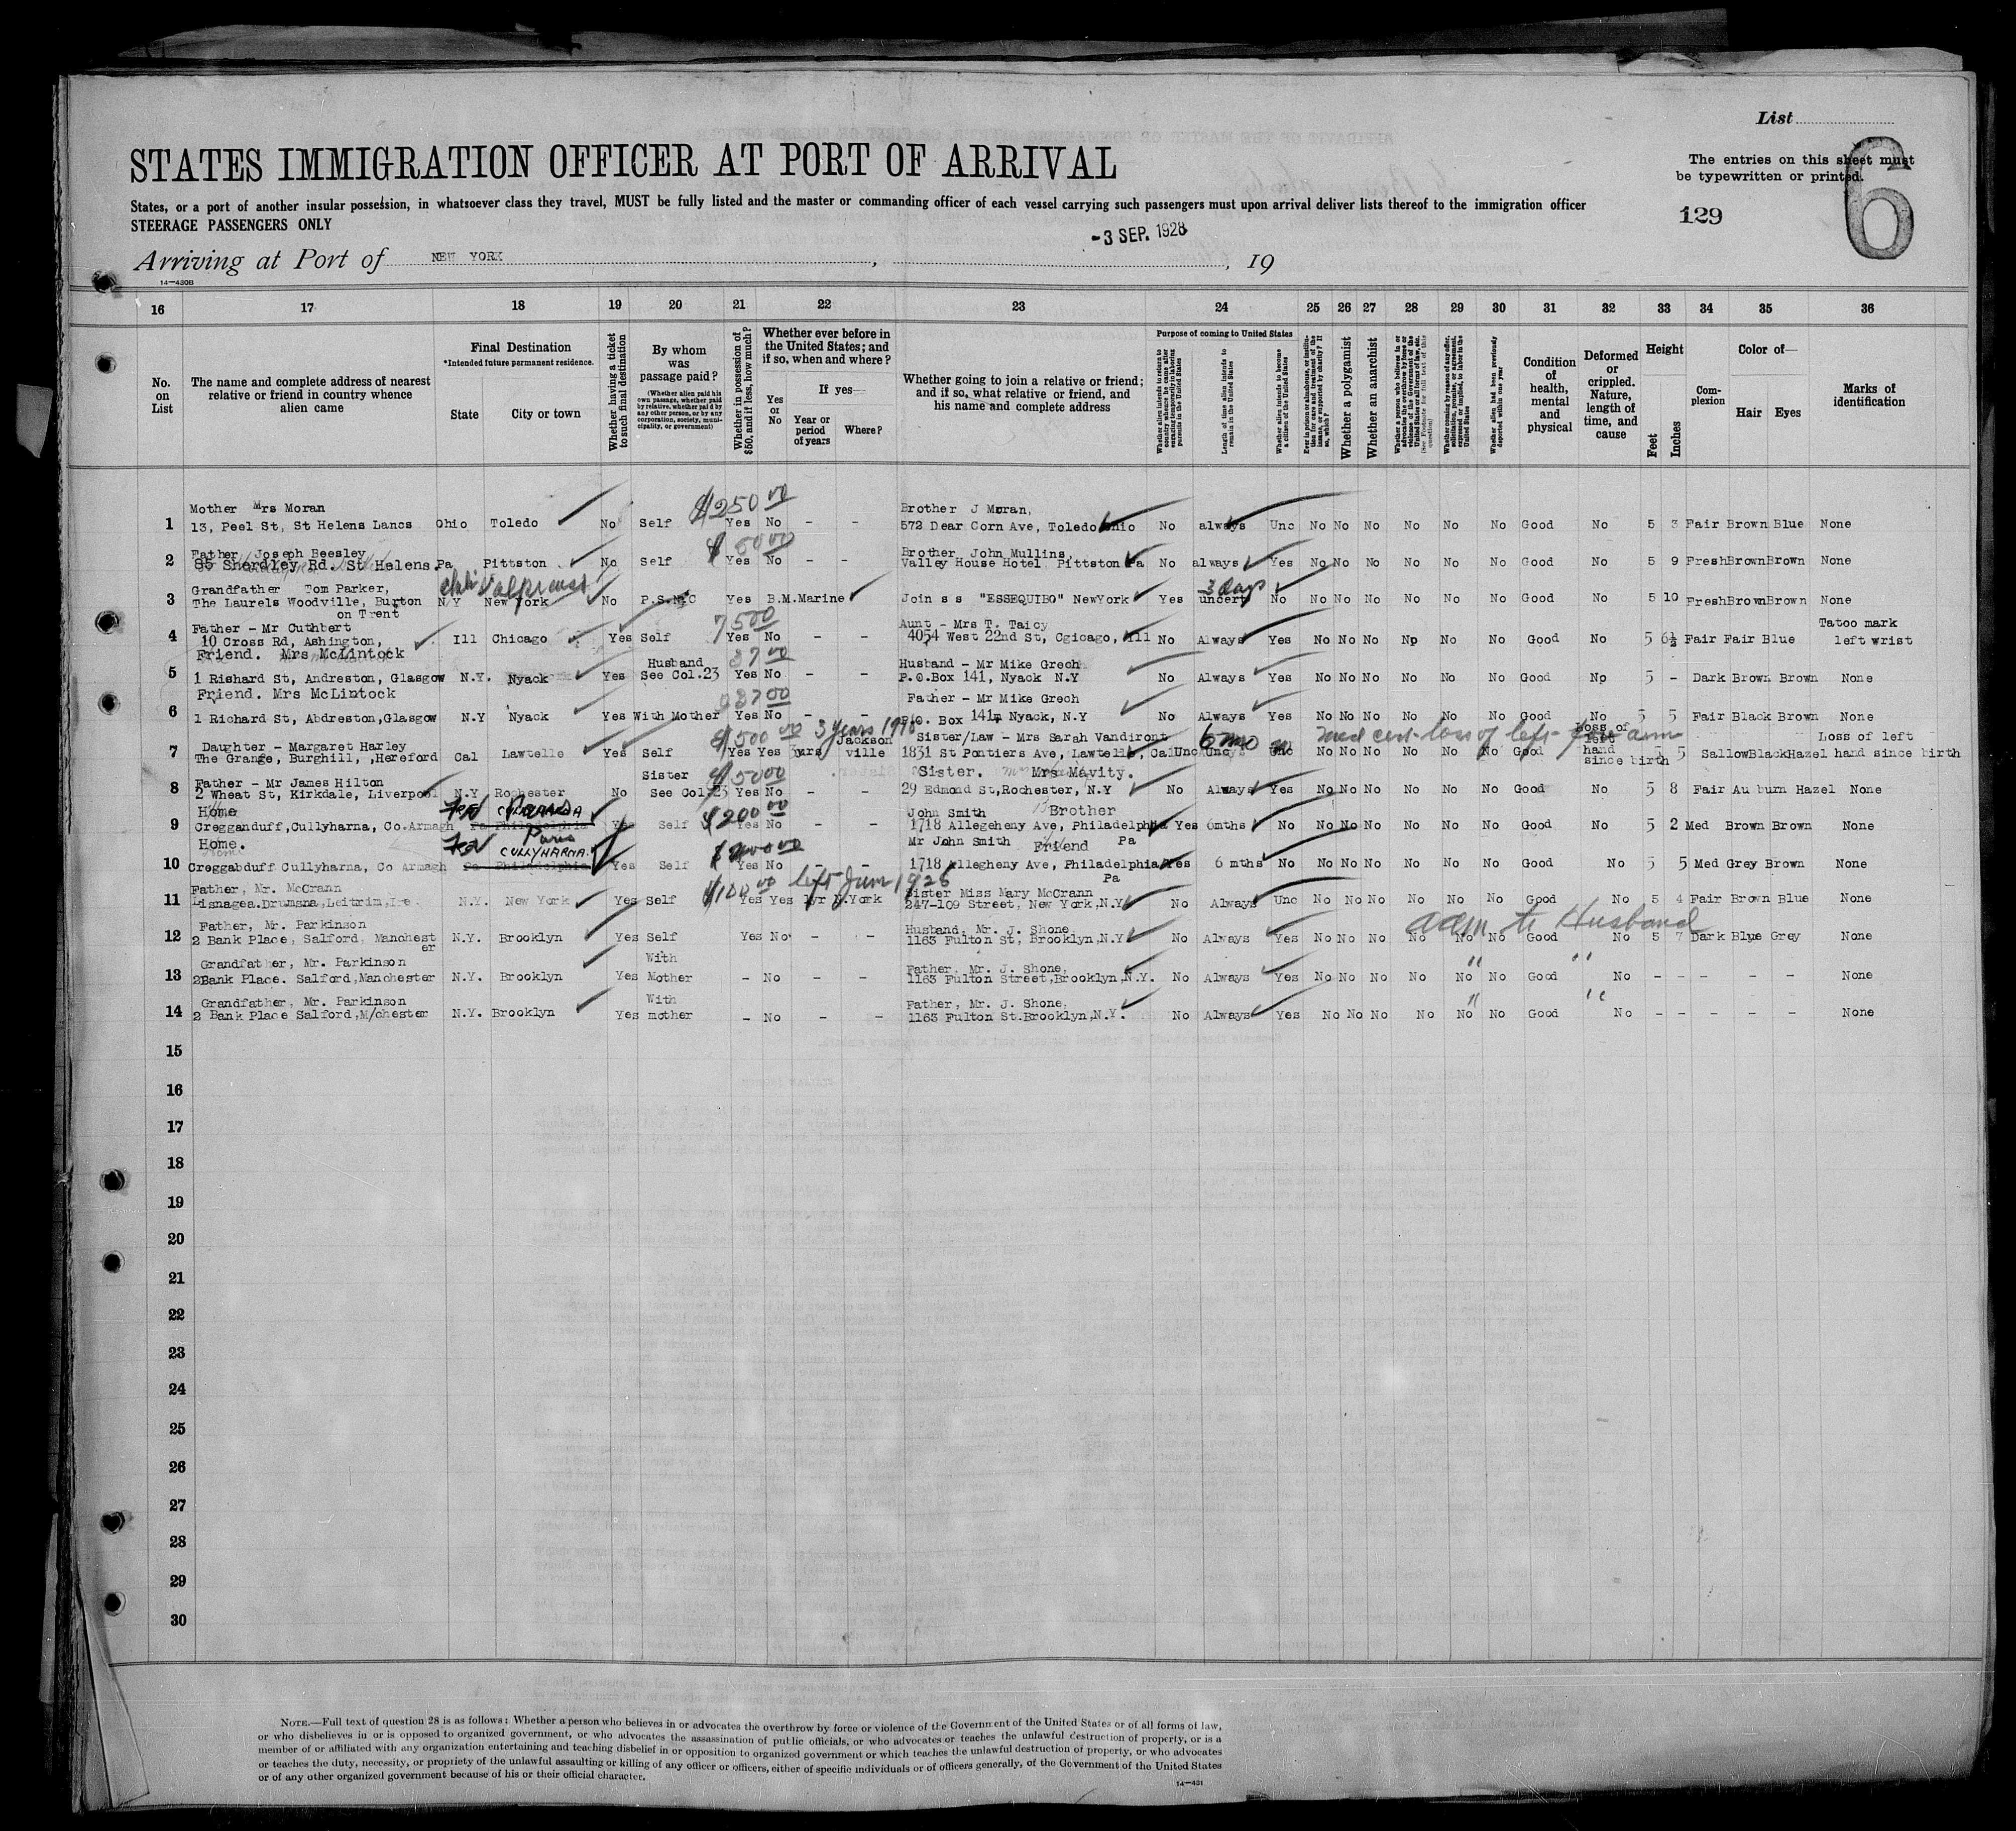 List
6
STATES IMMIGRATION OFFICER AT PORT OF ARRIVAL
The entries on this sheet must
be typewritten or printed.
States, or a port of another insular possession, in whatsoever class they travel, MUST be fully listed and the master or commanding officer of each vessel carrying such passengers must upon arrival deliver lists thereof to the immigration officer
STEERAGE PASSENGERS ONLY
129
-3 SEP. 1928
Arriving at Port of NEW YORK , , 19
14—430B
16 17 18 19 20 21 22 23 24 25 26 27 28 29 30 31 32 33 34 35 36
No. on List
The name and complete address of nearest relative or friend in country whence alien came
Final Destination
*Intended future permanent residence.
State City or town
Whether having a ticket to such final destination
By whom was passage paid?
(Whether alien paid his own passage, whether paid by relative, whether paid by any other person, or by any corporation, society, municipality, or government)
Whether in possession of $50, and if less, how much?
Whether ever before in the United States; and if so, when and where?
Yes or No
If yes—
Year or period of years Where?
Whether going to join a relative or friend; and if so, what relative or friend, and his name and complete address
Purpose of coming to United States
Whether alien intends to return to country whence he came after engaging temporarily in laboring pursuits in the United States
Length of time alien intends to remain in the United States
Whether alien intends to become a citizen of the United States
Ever in prison or almshouse, or institution for care and treatment of the insane, or supported by charity? If so, which?
Whether a polygamist
Whether an anarchist
Whether a person who believes in or advocates the overthrow by force or violence of the Government of the United States or all forms of law, etc. (See Footnote for full text of this question)
Whether coming by reason of any offer, solicitation, promise, or agreement, expressed or implied, to labor in the United States
Whether alien had been previously deported within one year
Condition of health, mental and physical
Deformed or crippled. Nature, length of time, and cause
Height
Feet Inches
Complexion
Color of—
Hair Eyes
Marks of identification
$250 00
Mother Mrs Moran Brother J Moran,
1 13, Peel St, St Helens Lancs Ohio Toledo No Self Yes No - - 572 Dear Corn Ave, Toledo Ohio No always Unc No No No No No No Good No 5 3 Fair Brown Blue None
$ 50 00
Father Joseph Beesley Brother John Mullins,
2 85 Sherdley Rd. St Helens. Pa Pittston No Self Yes No - - Valley House Hotel. Pittston Pa No always Yes No No No No No No Good No 5 9 Fresh Brown Brown None
Grandfather Tom Parker, 3 days
3 The Laurels Woodville, Burton N/Y New York No P.S.N.C Yes B.M.Marine Join s s "ESSEQUIBO" NewYork Yes uncert No No No No No No No Good No 5 10 Fresh Brown Brown None
on Trent
75 00
Father - Mr Cuthbert Aunt - Mrs T. Taicy Tatoo mark
4 10 Cross Rd, Ashington, Ill Chicago Yes Self Yes No - - 4054 West 22nd St, Cgicago, Ill No Always Yes No No No Np No No Good No 5 6½ Fair Fair Blue left wrist
Friend. Mrs McLintock Husband 37 00 Husband - Mr Mike Grech
5 1 Rishard St, Andreston, Glasgow N.Y. Nyack Yes See Col.23 Yes No - - P.O.Box 141, Nyack N.Y No Always Yes No No No No No No Good Np 5 - Dark Brown Brown None
Friend. Mrs McLintock Father - Mr Mike Grech
6 1 Richard St, Abdreston,Glasgow N.Y Nyack Yes With Mother Yes No - - P.O. Box 141, Nyack, N.Y No Always Yes No No No No No No Good No 5 5 Fair Black Brown None
$500 00 3 years 1916 6 mo no med cert loss of left arm
Daughter - Margaret Harley Jackson Sister/Law - Mrs Sarah Vandiront Loss of left hand since birth Loss of left
7 The Grange, Burghill, ,Hereford Cal Lawtelle Yes Self Yes Yes 3yrs ville 1831 St Pontiers Ave, Lawtelle, Cal Unc Unc Unc No No No No No No Good 5 5 Sallow Black Hazel hand since birth
Father - Mr James Hilton Sister $50 00 Sister. Mrs Mavity.
8 2 Wheat St, Kirkdale, Liverpool N.Y Rochester No See Col.23 Yes No 29 Edmond St,Rochester, N.Y No Always Yes No No No No No No Good No 5 8 Fair Au burn Hazel None
Home CULLYHARNA $200 00 John Smith Brother
9 Cregganduff,Cullyharna, Co.Armagh Pa Philadelphia Yes Self Yes No 1718 Allegeheny Ave, Philadelphia Yes 6mths No No No No No No No Good No 5 2 Med Brown Brown None
Home. CULLYHARNA. Mr John Smith Friend Pa
10 Creggabduff Cullyharna, Co Armagh Pa Philadelphia Yes Self Yes No - - 1718 Allegheny Ave, Philadelphia Yes 6 mths No No No No No No No Good No 5 5 Med Grey Brown None
$100 00 left Jun 1926 Pa
Father, Mr. McCrann Sister Miss Mary McCrann
11 Lisnagea.Drumsna,Leitrim,Ire. N.Y. New York Yes Self Yes Yes 1yr N.York 247-109 Street, New York,N.Y No Always Unc No No No No No No Good No 5 4 Fair Brown Blue None
adm to Husband
Father, Mr. Parkinson Husband, Mr. J. Shone
12 2 Bank Place, Salford, Manchester N.Y. Brooklyn Yes Self Yes No - - 1163 Fulton St, Brooklyn,N.Y No Always Yes No No No No No No Good No 5 7 Dark Blue Grey None
Grandfather, Mr. Parkinson With Father, Mr. J. Shone, " "
13 2Bank Place. Salford,Manchester N.Y. Brooklyn Yes Mother - No - - 1163 Fulton Street,Brooklyn,N.Y. No Always Yes No No No No No No Good No - - - - - None
Grandfather, Mr. Parkinson With Father, Mr. J. Shone, " "
14 2 Bank Place Salford,M/chester N.Y. Brooklyn Yes mother - No - - 1163 Fulton St.Brooklyn,N.Y. No Always Yes No No No No No No Good No - - - - - None
15
16
17
18
19
20
21
22
23
24
25
26
27
28
29
30
NOTE.—Full text of question 28 is as follows: Whether a person who believes in or advocates the overthrow by force or violence of the Government of the United States or of all forms of law,
or who disbelieves in or is opposed to organized government, or who advocates the assassination of public officials, or who advocates or teaches the unlawful destruction of property, or is a
member of or affiliated with any organization entertaining and teaching disbelief in or opposition to organized government or which teaches the unlawful destruction of property, or who advocates
or teaches the duty, necessity, or propriety of the unlawful assaulting or killing of any officer or officers, either of specific individuals or of officers generally, of the Government of the United States
or of any other organized government because of his or their official character.
14—431